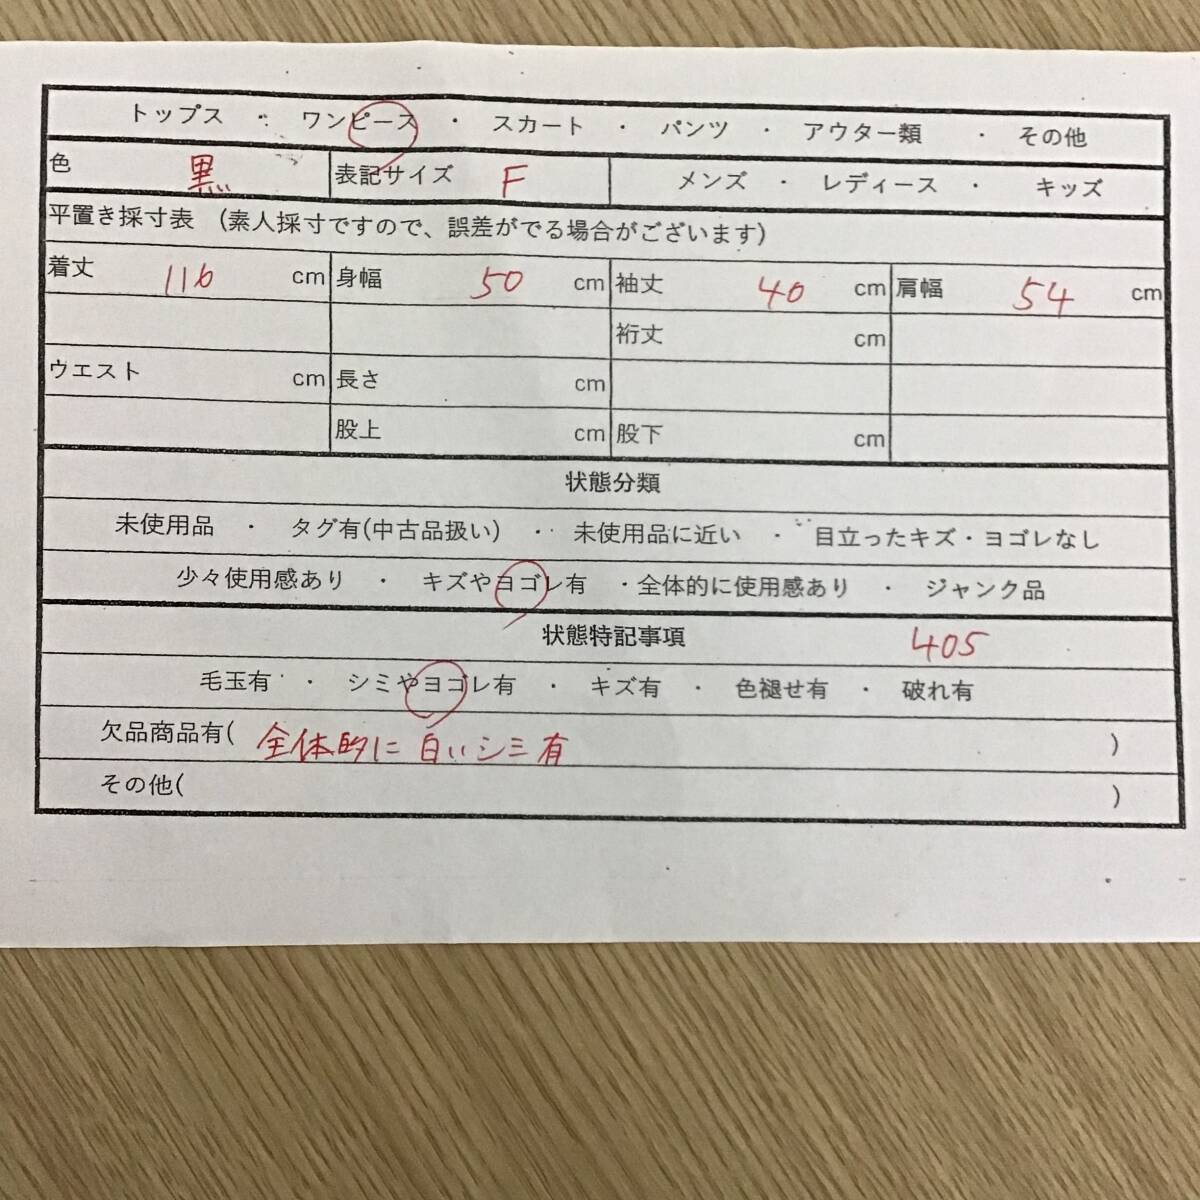 トップス ・ ワンピース ・ スカート ・ パンツ ・ アウター類 ・ その他
色 黒 表記サイズ F メンズ ・ レディース ・ キッズ
平置き採寸表 (素人採寸ですので、誤差がでる場合がございます)
着丈 116 cm 身幅 50 cm 袖丈 40 cm 肩幅 54 cm
裄丈 cm
ウエスト cm 長さ cm
股上 cm 股下 cm
状態分類
未使用品 ・ タグ有(中古品扱い) ・ 未使用品に近い ・ 目立ったキズ・ヨゴレなし
少々使用感あり ・ キズやヨゴレ有 ・全体的に使用感あり ・ ジャンク品
状態特記事項 405
毛玉有 ・ シミやヨゴレ有 ・ キズ有 ・ 色褪せ有 ・ 破れ有
欠品商品有( 全体的に白いシミ有 )
その他( )